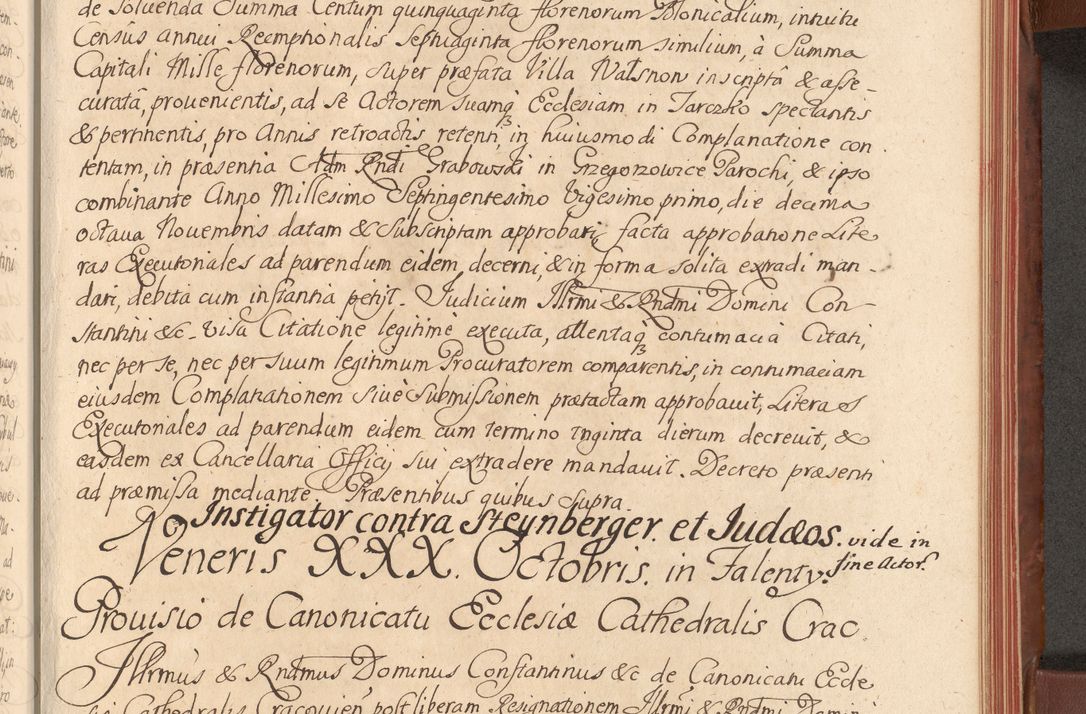 de Soluenda Summa Centum quinquaginta florenorum Polonicalium, intuitu
Censûs annui Reemptionalis Septuaginta florenorum similium, à Summa
Capitali Mille florenorum, super præfata Villa Walsnow inscriptâ & asse-
curatâ, prouenientis, ad se Actorem suamq Ecclesiam in Tarczko spectantis
& pertinentis, pro Annis retroactis retenti, in huiusmodi Complanatione con
tentam, in præsentia Adm Rndi Grabowski in Grzegorzowice Parochi, & ipso
combinante Anno Millesimo Septingentesimo Vigesimo primo, die decima
octaua Nouembris datam & subscriptam approbari, facta approbatione Lite
ras Executoriales ad parendum eidem, decerni, & in forma solita extradi man-
dari, debita cum instantia petijt. Judicium Illrmi & Rndmi Domini Con-
stantini &c. visa Citatione legitimè executa, attentaq contumacia Citati,
nec per se, nec per suum legitimum Procuratorem comparentis, in contumaciam
eiusdem Complanationem siuè Submissionem prætactam approbauit, Literas
Executoriales ad parendum eidem cum termino triginta dierum decreuit, &
easdem ex Cancellaria Officij sui extradere mandauit. Decreto præsenti
ad præmissa mediante. Præsentibus quibus supra.
Instigator contra Steynberger. et Judæos. vide in
fine Actor.
Veneris XXX. Octobris. in Falenty.
Prouisio de Canonicatu Ecclesiæ Cathedralis Crac.
Illrmùs & Rndmus Dominus Constantinus &c de Canonicatu Eccle
siæ Cathedralis Cracouien post liberam Resignationem Illrmi & Rndmi Domini